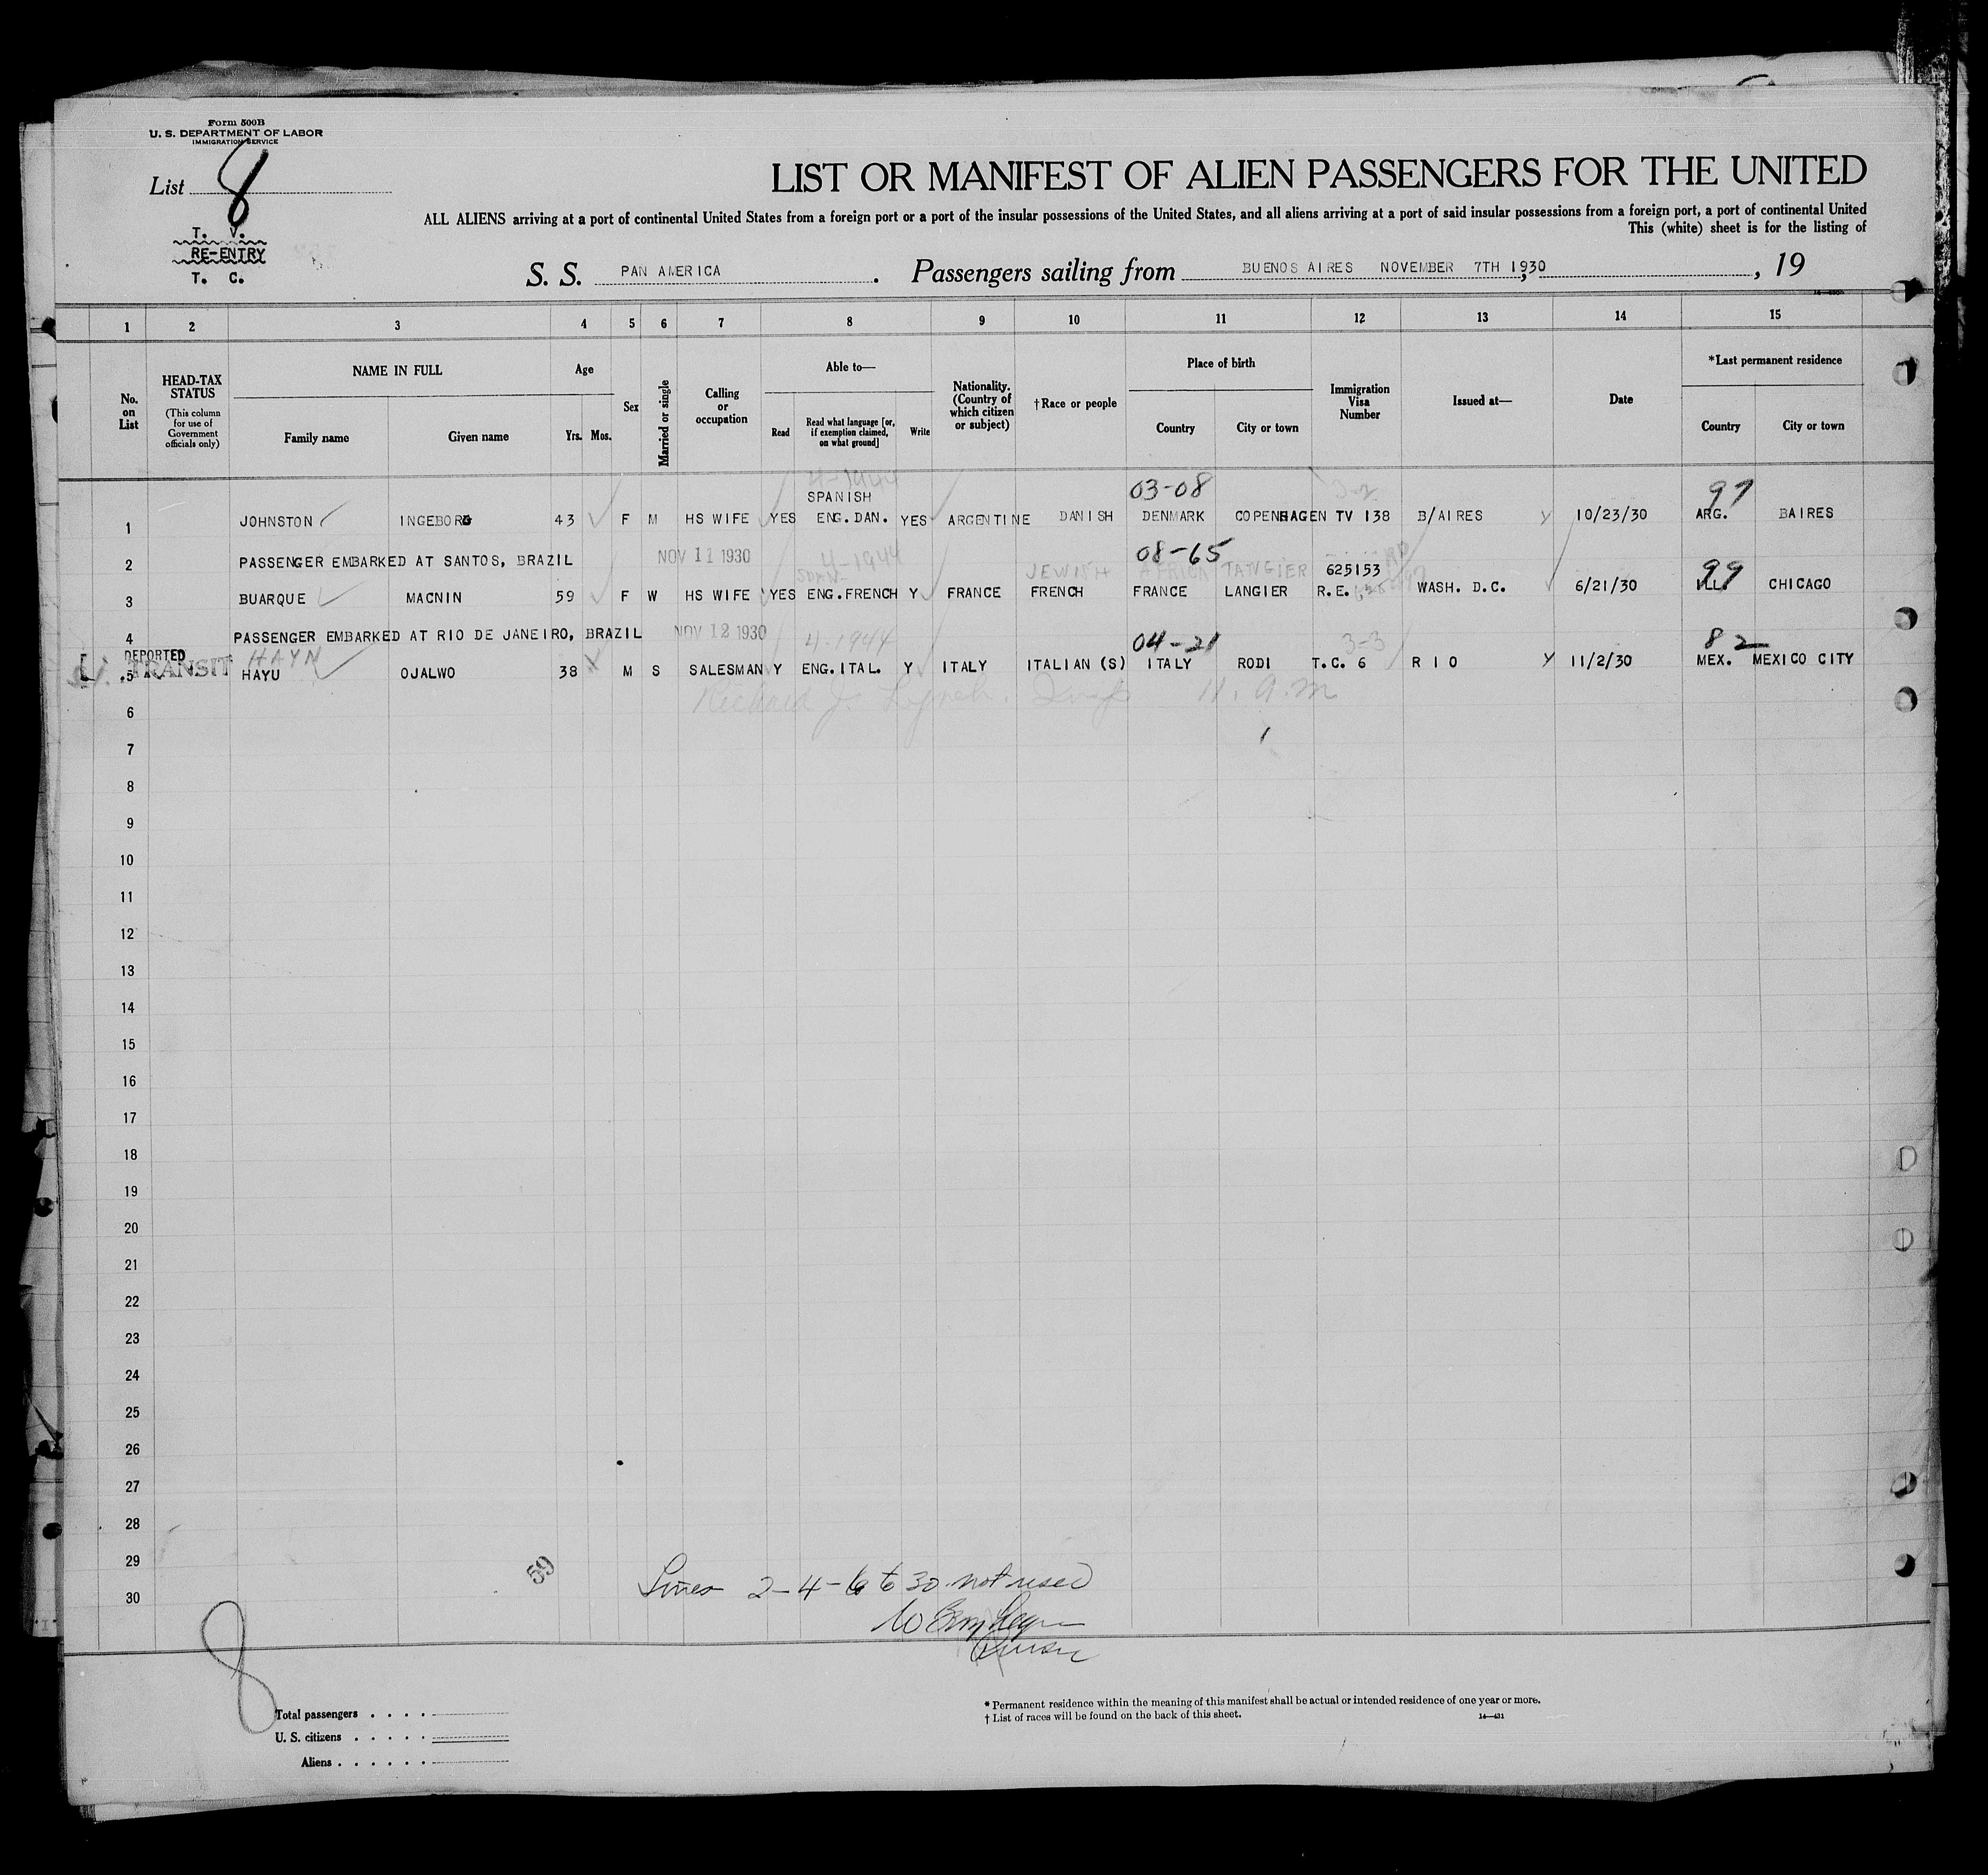 Form 500B
U. S. DEPARTMENT OF LABOR
IMMIGRATION SERVICE
List 8
T. V.
RE-ENTRY
T. C.
LIST OR MANIFEST OF ALIEN PASSENGERS FOR THE UNITED
ALL ALIENS arriving at a port of continental United States from a foreign port or a port of the insular possessions of the United States, and all aliens arriving at a port of said insular possessions from a foreign port, a port of continental United
This (white) sheet is for the listing of
S. S. PAN AMERICA. Passengers sailing from BUENOS AIRES NOVEMBER 7TH 1930, 19
1 2 3 4 5 6 7 8 9 10 11 12 13 14 15
No. on List
HEAD-TAX STATUS (This column for use of Government officials only)
NAME IN FULL
Family name Given name
Age
Yrs. Mos.
Sex
Married or single
Calling or occupation
Able to—
Read
Read what language [or, if exemption claimed, on what ground]
Write
Nationality. (Country of which citizen or subject)
†Race or people
Place of birth
Country City or town
Immigration Visa Number
Issued at—
Date
*Last permanent residence
Country City or town
4-1944 03-08 3-2 97
SPANISH
1 JOHNSTON INGEBORG 43 F M HS WIFE YES ENG. DAN. YES ARGENTINE DANISH DENMARK COPENHAGEN TV 138 B/AIRES 10/23/30 ARG. BAIRES
2 PASSENGER EMBARKED AT SANTOS, BRAZIL NOV 11 1930 4-1944 08-65
SPAN- JEWISH AFRICA TANGIER 625153 99
3 BUARQUE MACNIN 59 F W HS WIFE YES ENG.FRENCH Y FRANCE FRENCH FRANCE LANGIER R.E. WASH. D.C. 6/21/30 ILL. CHICAGO
4 PASSENGER EMBARKED AT RIO DE JANEIRO, BRAZIL NOV 12 1930 4-1944 04-21 3-3 82
DEPORTED
TRANSIT HAYN
5 HAYU OJALWO 38 M S SALESMAN Y ENG. ITAL. Y ITALY ITALIAN (S) ITALY RODI T.C. 6 RIO 11/2/30 MEX. MEXICO CITY
Richard J. Lynch. Insp
6
7
8
9
10
11
12
13
14
15
16
17
18
19
20
21
22
23
24
25
26
27
28
29
30
59
Lines 2-4-6 to 30 not used
8
Total passengers . . . .
U. S. citizens . . . . .
Aliens . . . . . .
* Permanent residence within the meaning of this manifest shall be actual or intended residence of one year or more.
† List of races will be found on the back of this sheet.
14—431